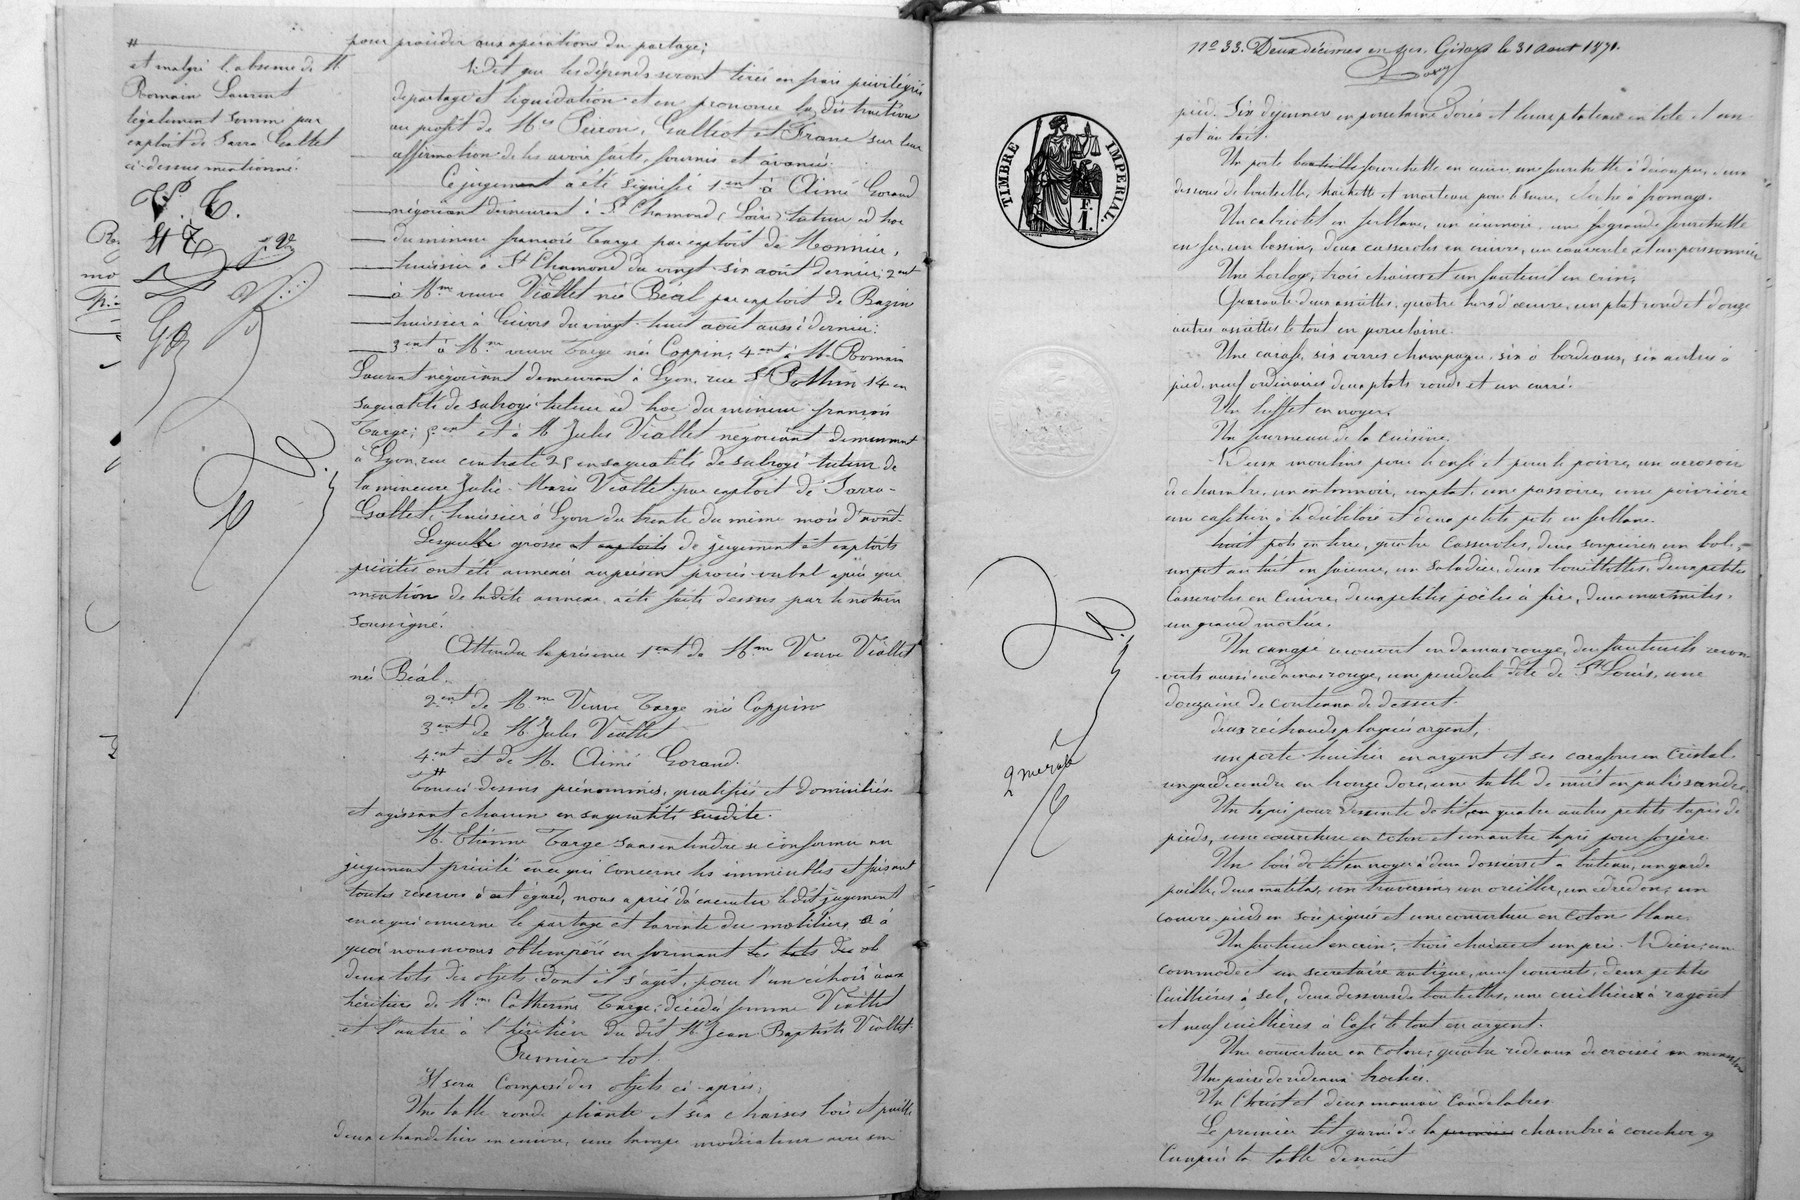 #
et malgré l'absence de M.
Romain Laurent
légalement sommé par
exploit de Sarra Gallet
ci-dessus mentionné.
pour procéder aux opérations du partage;
Dit que les dépends seront tirés en frais privilégiés
de partage et liquidation et en prononce la distraction
au profit de Mes Pineon, Galliot et Franc sur leur
affirmation de les avoir faits, fournis et avancés.
Ce jugement a été signifié 1ent à Aimé Gorand
négociant demeurant à St Chamond, (Loire) tuteur ad hoc
du mineur françois Targe par exploit de Monnier,
huissier à St Chamond du vingt-six août dernier; 2ent
à Mme veuve Viallet née Béal par exploit de Bazin
huissier à Givors du vingt-huit août aussi dernier;
3ent à Mme veuve Targe née Coppin; 4ent à M. Romain
Laurent négociant demeurant à Lyon, rue St Pothin 14 en
sa qualité de subrogé-tuteur ad hoc du mineur françois
Targe; 5ent et à M. Jules Viallet négociant demeurant
à Lyon, rue centrale 25 en sa qualité de subrogé tuteur de
la mineure Julie-Marie Viallet par exploit de Sarra-
Gallet, huissier à Lyon du trente du même mois d'août.
Lesquels grosse et exploits de jugement et exploits
précités ont été annexés au présent procès-verbal après que
mention de la dite annexe a été faite dessus par le notaire
soussigné.
Attendu la présence 1ent de Mme Veuve Viallet
née Béal.
2ent de Mme Veuve Targe née Coppin
3ent de M. Jules Viallet
4ent et de M. Aimé Gorand.
#
Tous ci-dessus prénommés, qualifiés et domiciliés
et agissant chacun en sa qualité susdite.
M. Etienne Targe sans entendre se conformer au
jugement précité en ce qui concerne les immeubles et faisant
toutes réserves à cet égard, nous a prié d'exécuter le dit jugement
en ce qui concerne le partage et la vente du mobilier, à
quoi nous avons obtempéré en formant les lots des ob
deux lots des objets dont il s'agit, pour l'un échoir aux
héritiers de Mme Catherine Targe, décédée femme Viallet
et l'autre à l'héritière du dit M. Jean Baptiste Viallet.
Premier lot.
Il sera composé des objets ci-après;
Une table ronde pliante et six chaises bois et paille
deux chandeliers en cuivre, une lampe modérateur avec son
No 33. Deux décimes en sus. Givors le 31 Août 1871.
TIMBRE IMPERIAL.
F.
1.
pied. Six déjeuners en porcelaine dorés et leurs plateaux en tôle et un
pot au lait.
Un porte bouteille fourchette en cuivre, une fourchette à découper, deux
dessous de bouteille, hachette et marteau pour le sucre, cloche à fromage.
Un cabriolet en ferblanc, un écumoir, une fe grande fourchette
en fer, un bassin, deux casseroles en cuivre, un couvercle et un poissonnier
Une horloge, trois chaises et un fauteuil en crin;
Quarante-deux assiettes, quatre hors d'œuvre, un plat rond et douze
autres assiettes le tout en porcelaine.
Une carafe, six verres champagne, six à bordeaux, six autres à
pied, neuf ordinaires deux plats ronds et un carré.
Un buffet en noyer,
Un fourneau de la cuisine.
Deux moulins pour le café et pour le poivre, un arrosoir
de chambre, un entonnoir, un plat, une passoire, une poivrière
une cafetière à la débéloire et deux petits pots en ferblanc.
huit pots en terre, quatre casseroles, deux soupières, un bol,
un pot au lait en faïence, un saladier, deux bouillottes, deux petites
casseroles en cuivre, deux petites poêles à frire, deux marmites,
un grand mortier.
Un canapé recouvert en damas rouge, deux fauteuils recou-
verts aussi en damas rouge, une pendule dite de St Louis, une
douzaine de couteaux de dessert.
deux réchauds plaqués argent,
un porte-huilier en argent et ses carafons en cristal
un garde cendre en bronze doré, une table de nuit en palissandre
Un tapis pour descente de lit, quatre autres petits tapis de
pieds, une couverture en coton et un autre tapis pour foyère
Un bois de lit en noyer à deux dossiers et à bateau, un garde
paille, deux matelas, un traversin, un oreiller, un édredon, un
couvre-pieds en soie piquée et une couverture en coton blanc.
Un fauteuil en crin, trois chaises et un prie-Dieu; une
commode et un secrétaire antique, neuf couverts, deux petites
cuillières à sel, deux dessous de bouteilles, une cuillière à ragoût
et neuf cuillières à café le tout en argent.
Une couverture en coton, quatre rideaux de croisée en mousseline
Une paire de rideaux brochés.
Un Christ et deux mauvais candélabres
Le premier lit garni de la première chambre à coucher y
compris la table de nuit
2me rôle